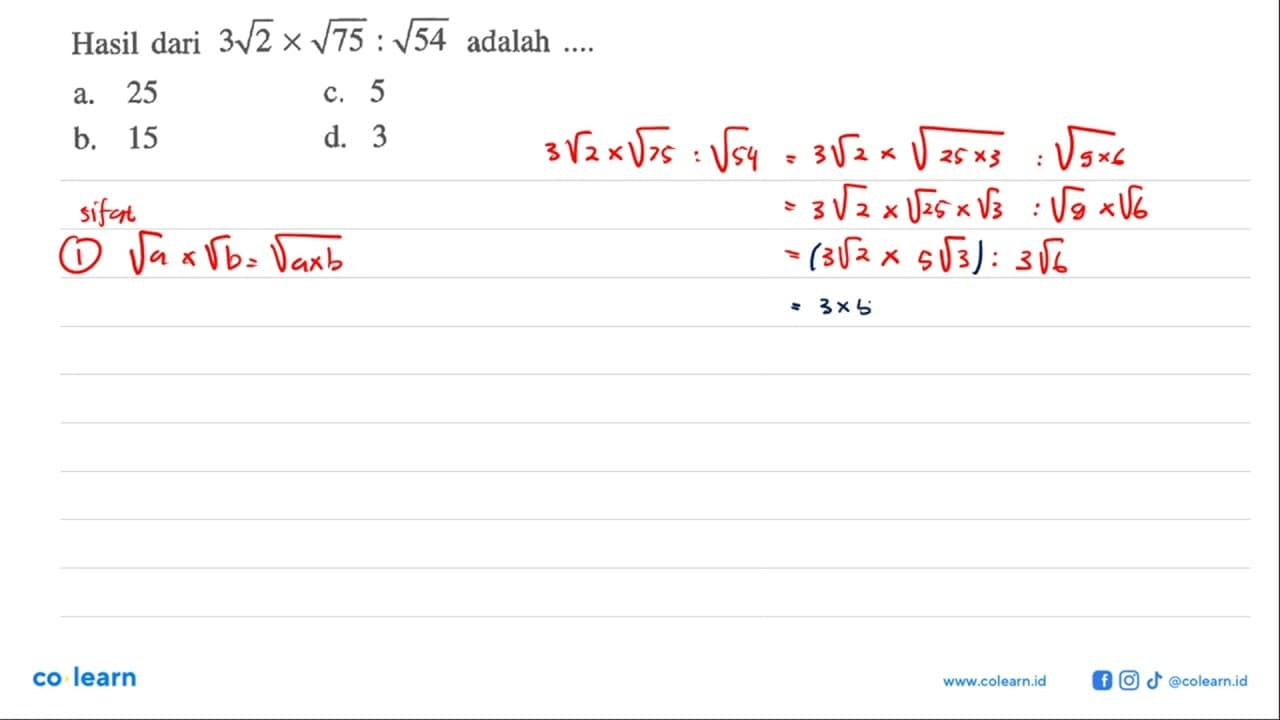 Hasil dari 3√2 × √75 : √54 adalah ....
a. 25 c. 5
b. 15 d. 3
3√2 × √75 : √54 = 3√2 × √25×3 : √9×6
= 3√2 × √25 × √3 : √9 × √6
= (3√2 × 5√3) : 3√6
= 3×5
sifat
① √a × √b = √a×b
co learn
www.colearn.id
@colearn.id